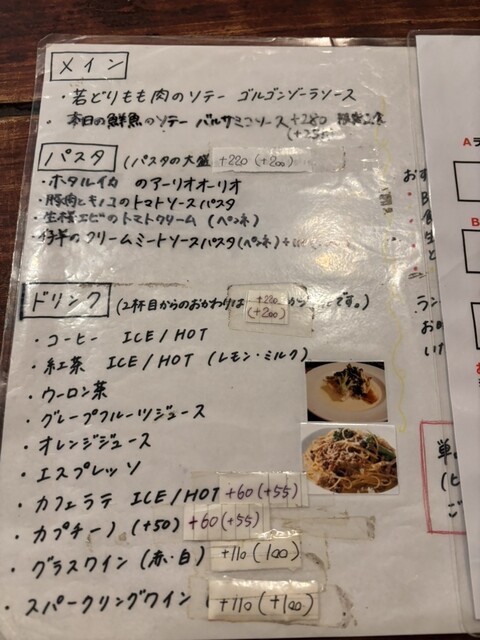 メイン
・若どりもも肉のソテー ゴルゴンゾーラソース
・本日の鮮魚のソテー バルサミコソース +280
パスタ (パスタの大盛 +220 (+200)
・ホタルイカ のアーリオオーリオ
・豚肉とキノコのトマトソースパスタ
・生桜エビのトマトクリーム (ペンネ)
・仔羊のクリームミートソースパスタ (ペンネ)
ドリンク (2杯目からのおかわりは +220 (+200) です。)
・コーヒー ICE/HOT
・紅茶 ICE/HOT (レモン・ミルク)
・ウーロン茶
・グレープフルーツジュース
・オレンジジュース
・エスプレッソ
・カフェラテ ICE/HOT +60(+55)
・カプチーノ (+50) +60(+55)
・グラスワイン (赤・白) +110 (100)
・スパークリングワイン ( +110 (+100)